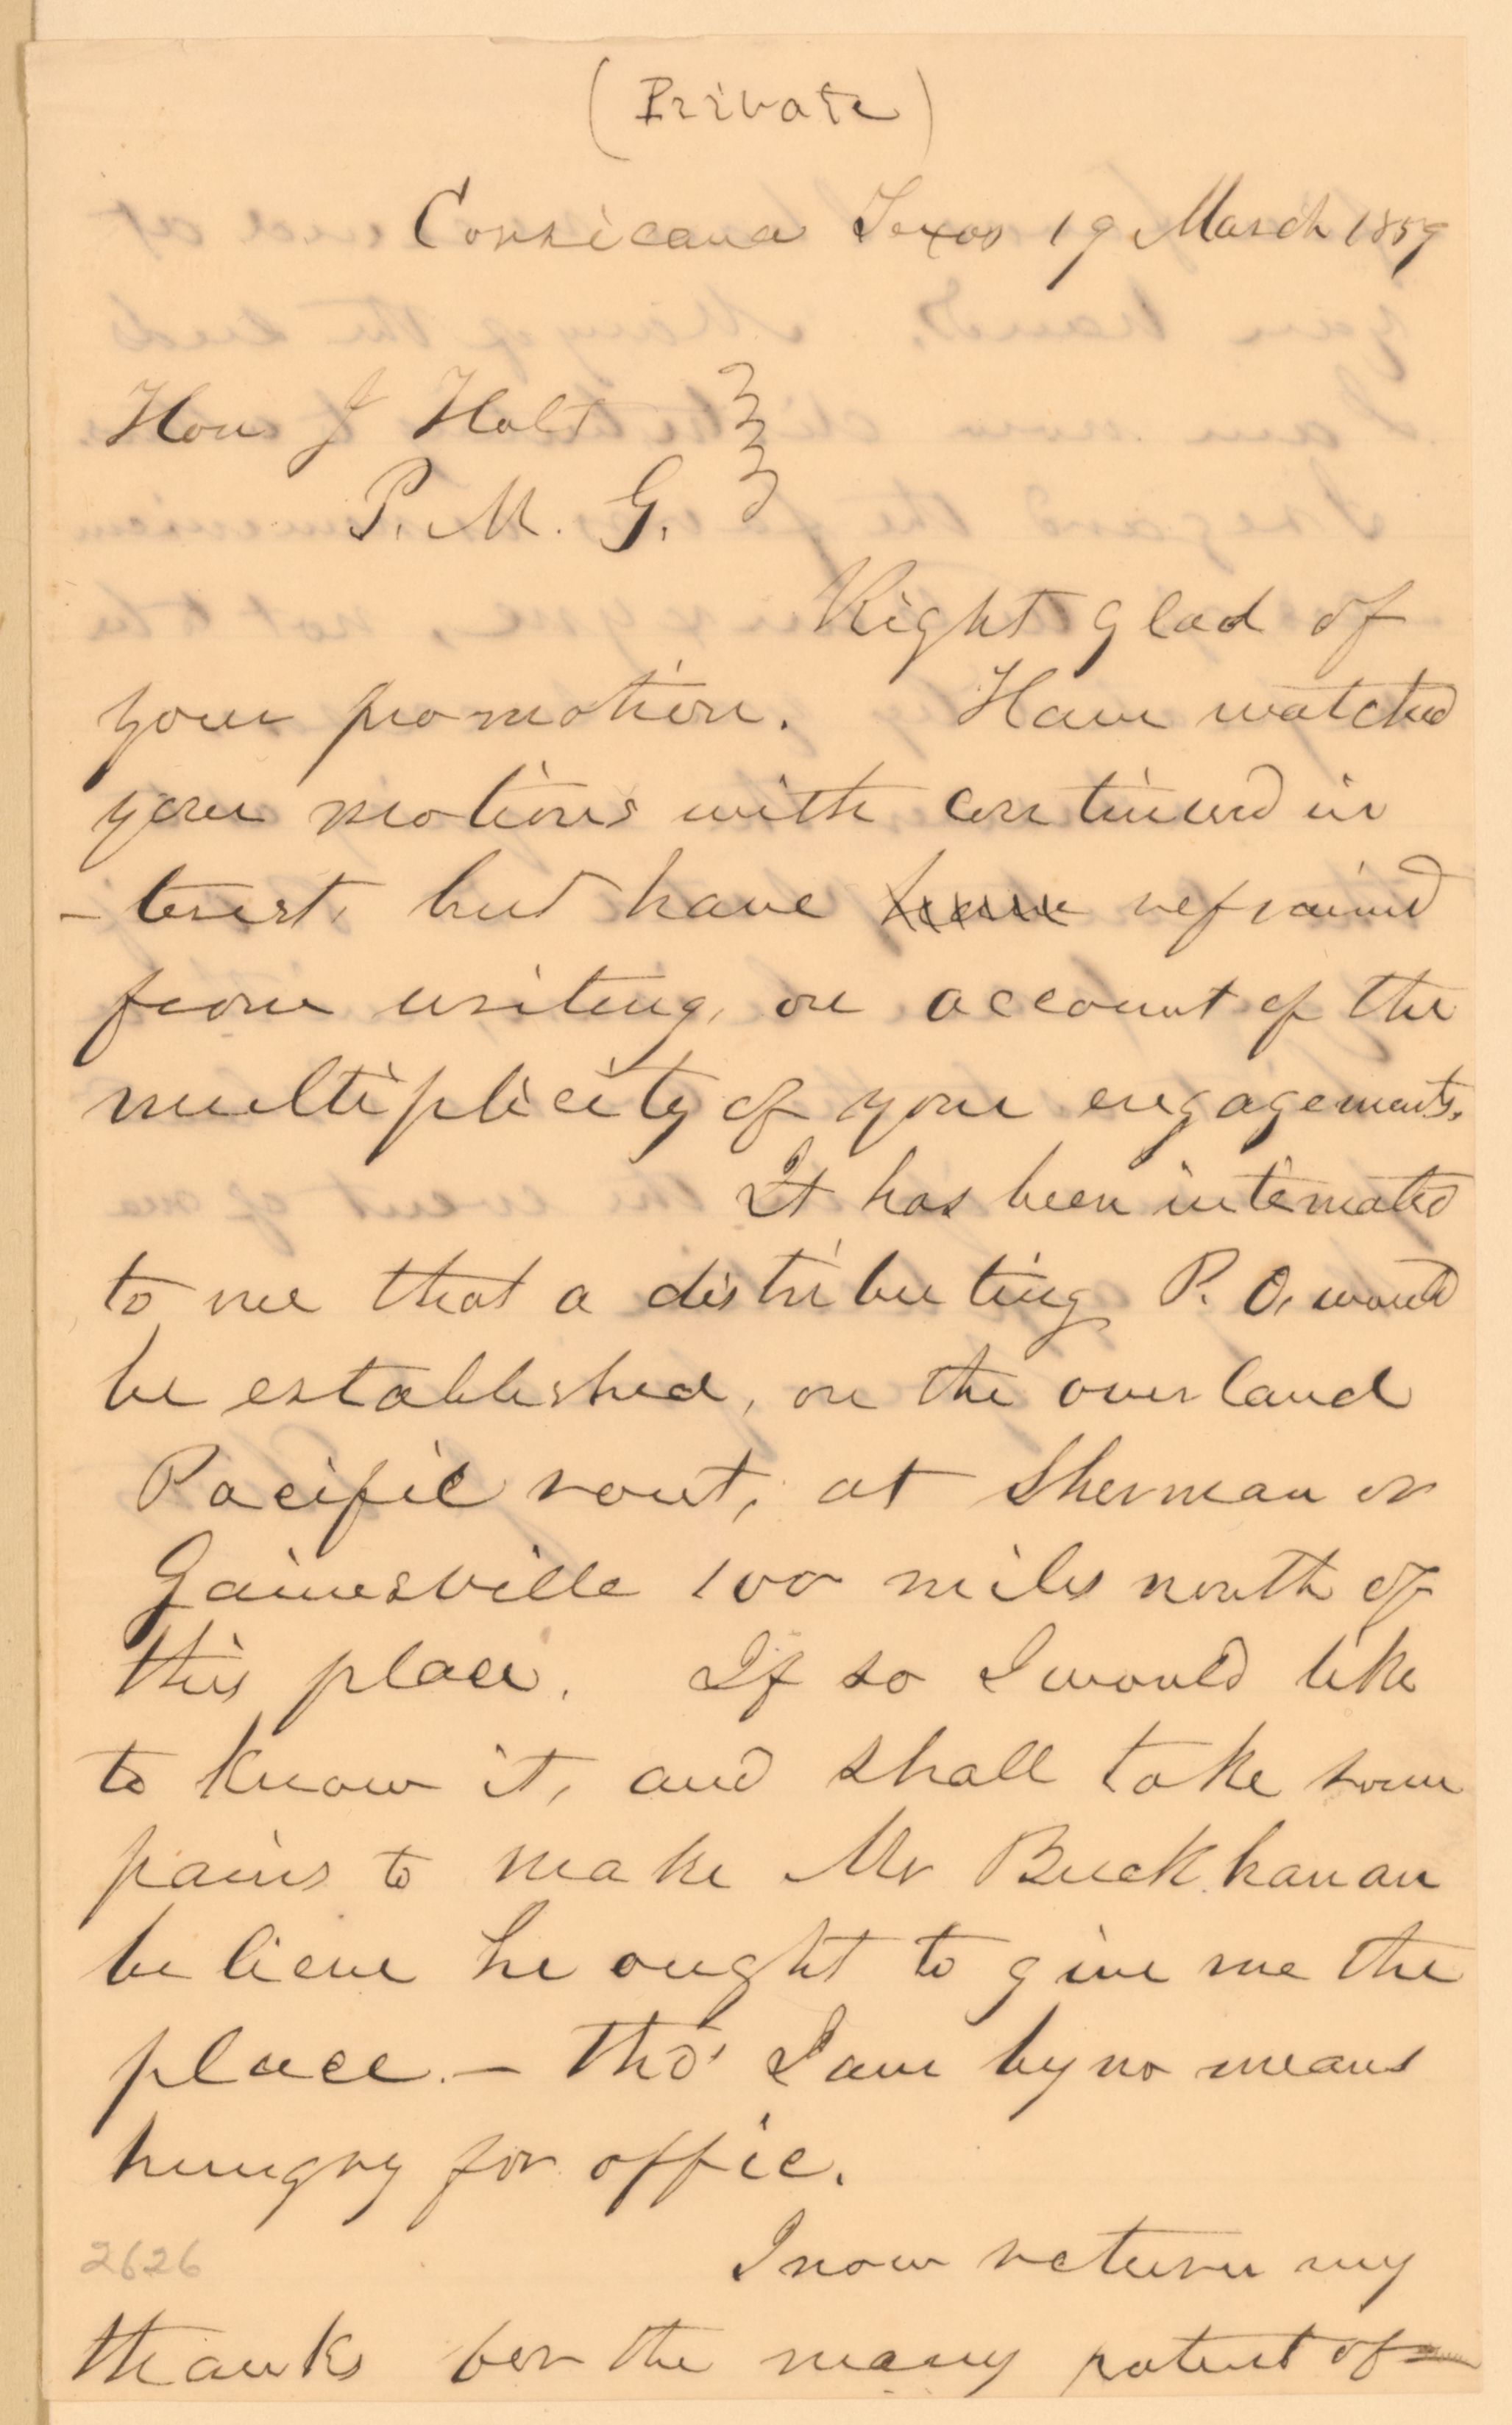 (Private)
Corsicana Texas 19 March 1859
Hon J Holt
P. M. G.
Right glad of
your promotion. Have watched
your motions with continued in
-terest, but have refrained
from writing, on account of the
multiplicity of your engagements.
It has been intimated
to me that a distributing P. O. would
be established, on the overland
Pacific rout, at Sherman or
Gainesville 100 miles north of
this place. If so I would like
to know it, and shall take some
pains to make Mr Buckhanan
believe he ought to give me the
place. – Tho' I am by no means
hungry for offic.
2626
I now return my
thanks for the many patent of-